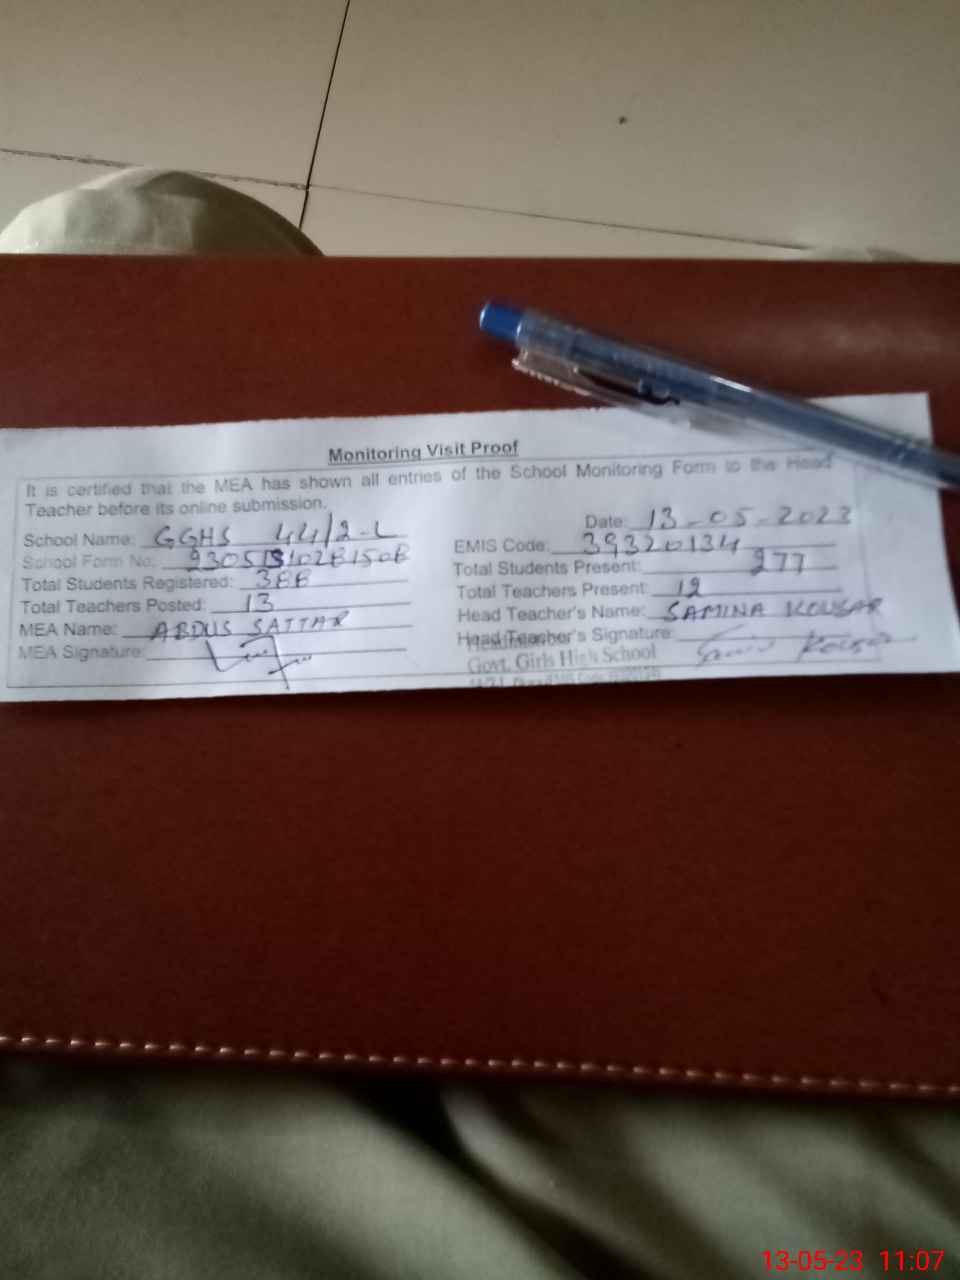 Monitoring Visit Proof
It is certified that the MEA has shown all entries of the School Monitoring Form to the Head
Teacher before its online submission.
Date: 13-05-2023
School Name: GGHS 44/2-L
EMIS Code: 39320134
School Form No:
Total Students Present: 277
Total Students Registered: 388
Total Teachers Present: 12
Total Teachers Posted: 13
Head Teacher's Name: SAMINA KOUSAR
MEA Name: ABDUS SATTAR
Head Teacher's Signature:
MEA Signature:
Govt. Girls High School
13-05-23 11:07